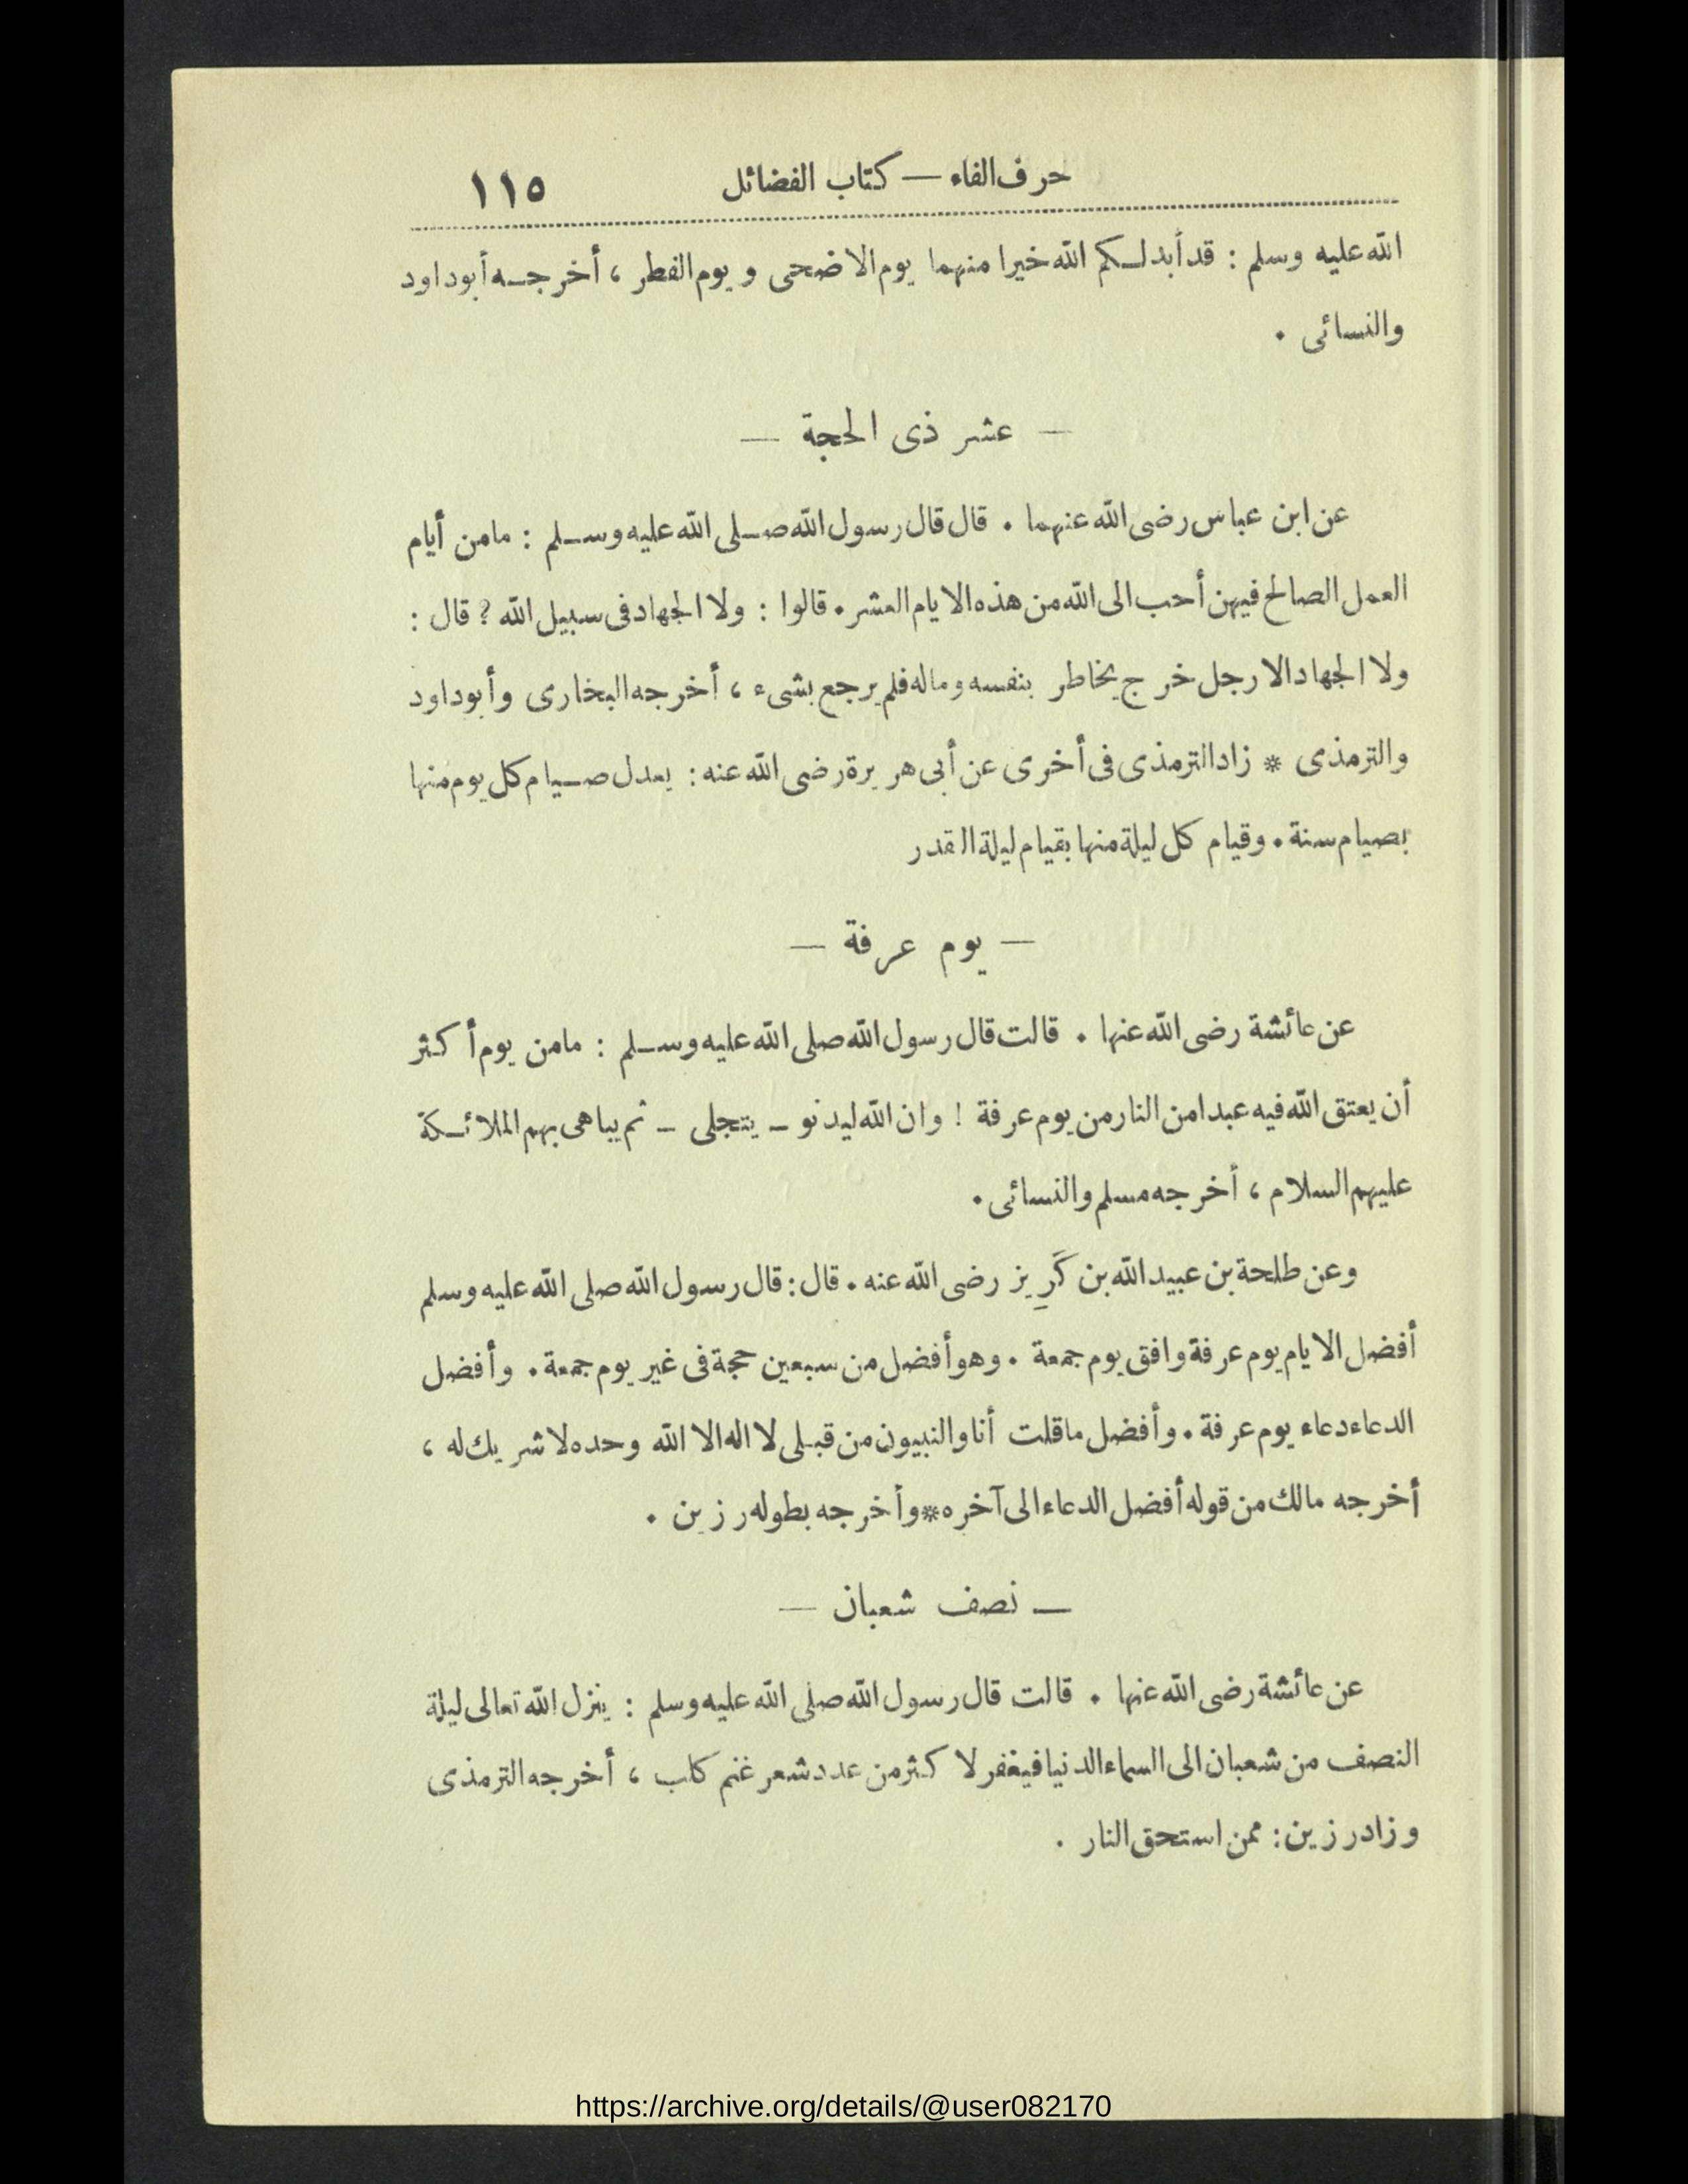 حرف الفاء — كتاب الفضائل ١١٥
الله عليه وسلم : قد أبدلكم الله خيرا منهما يوم الاضحى و يوم الفطر ، أخرجه أبو داود
والنسائى .
— عشر ذى الحجة —
عن ابن عباس رضى الله عنهما . قال قال رسول الله صلى الله عليه وسلم : مامن أيام
العمل الصالح فيهن أحب الى الله من هذه الايام العشر . قالوا : ولا الجهاد فى سبيل الله ? قال :
ولا الجهاد الا رجل خرج يخاطر بنفسه وماله فلم يرجع بشىء ، أخرجه البخارى وأبو داود
والترمذى * زاد الترمذى فى أخرى عن أبى هريرة رضى الله عنه : يعدل صيام كل يوم منها
بصيام سنة . وقيام كل ليلة منها بقيام ليلة القدر
— يوم عرفة —
عن عائشة رضى الله عنها . قالت قال رسول الله صلى الله عليه وسلم : مامن يوم أكثر
أن يعتق الله فيه عبدا من النار من يوم عرفة ! وان الله ليدنو ـ يتجلى ـ ثم يباهى بهم الملائكة
عليهم السلام ، أخرجه مسلم والنسائى .
وعن طلحة بن عبيد الله بن كَرِيز رضى الله عنه . قال : قال رسول الله صلى الله عليه وسلم
أفضل الايام يوم عرفة وافق يوم جمعة . وهو أفضل من سبعين حجة فى غير يوم جمعة . وأفضل
الدعاء دعاء يوم عرفة . وأفضل ماقلت أنا والنبيون من قبلى لا اله الا الله وحده لا شريك له ،
أخرجه مالك من قوله أفضل الدعاء الى آخره * وأخرجه بطوله رزين .
— نصف شعبان —
عن عائشة رضى الله عنها . قالت قال رسول الله صلى الله عليه وسلم : ينزل الله تعالى ليلة
النصف من شعبان الى السماء الدنيا فيغفر لا كثر من عدد شعر غنم كلب ، أخرجه الترمذى
وزاد رزين : ممن استحق النار .
https://archive.org/details/@user082170